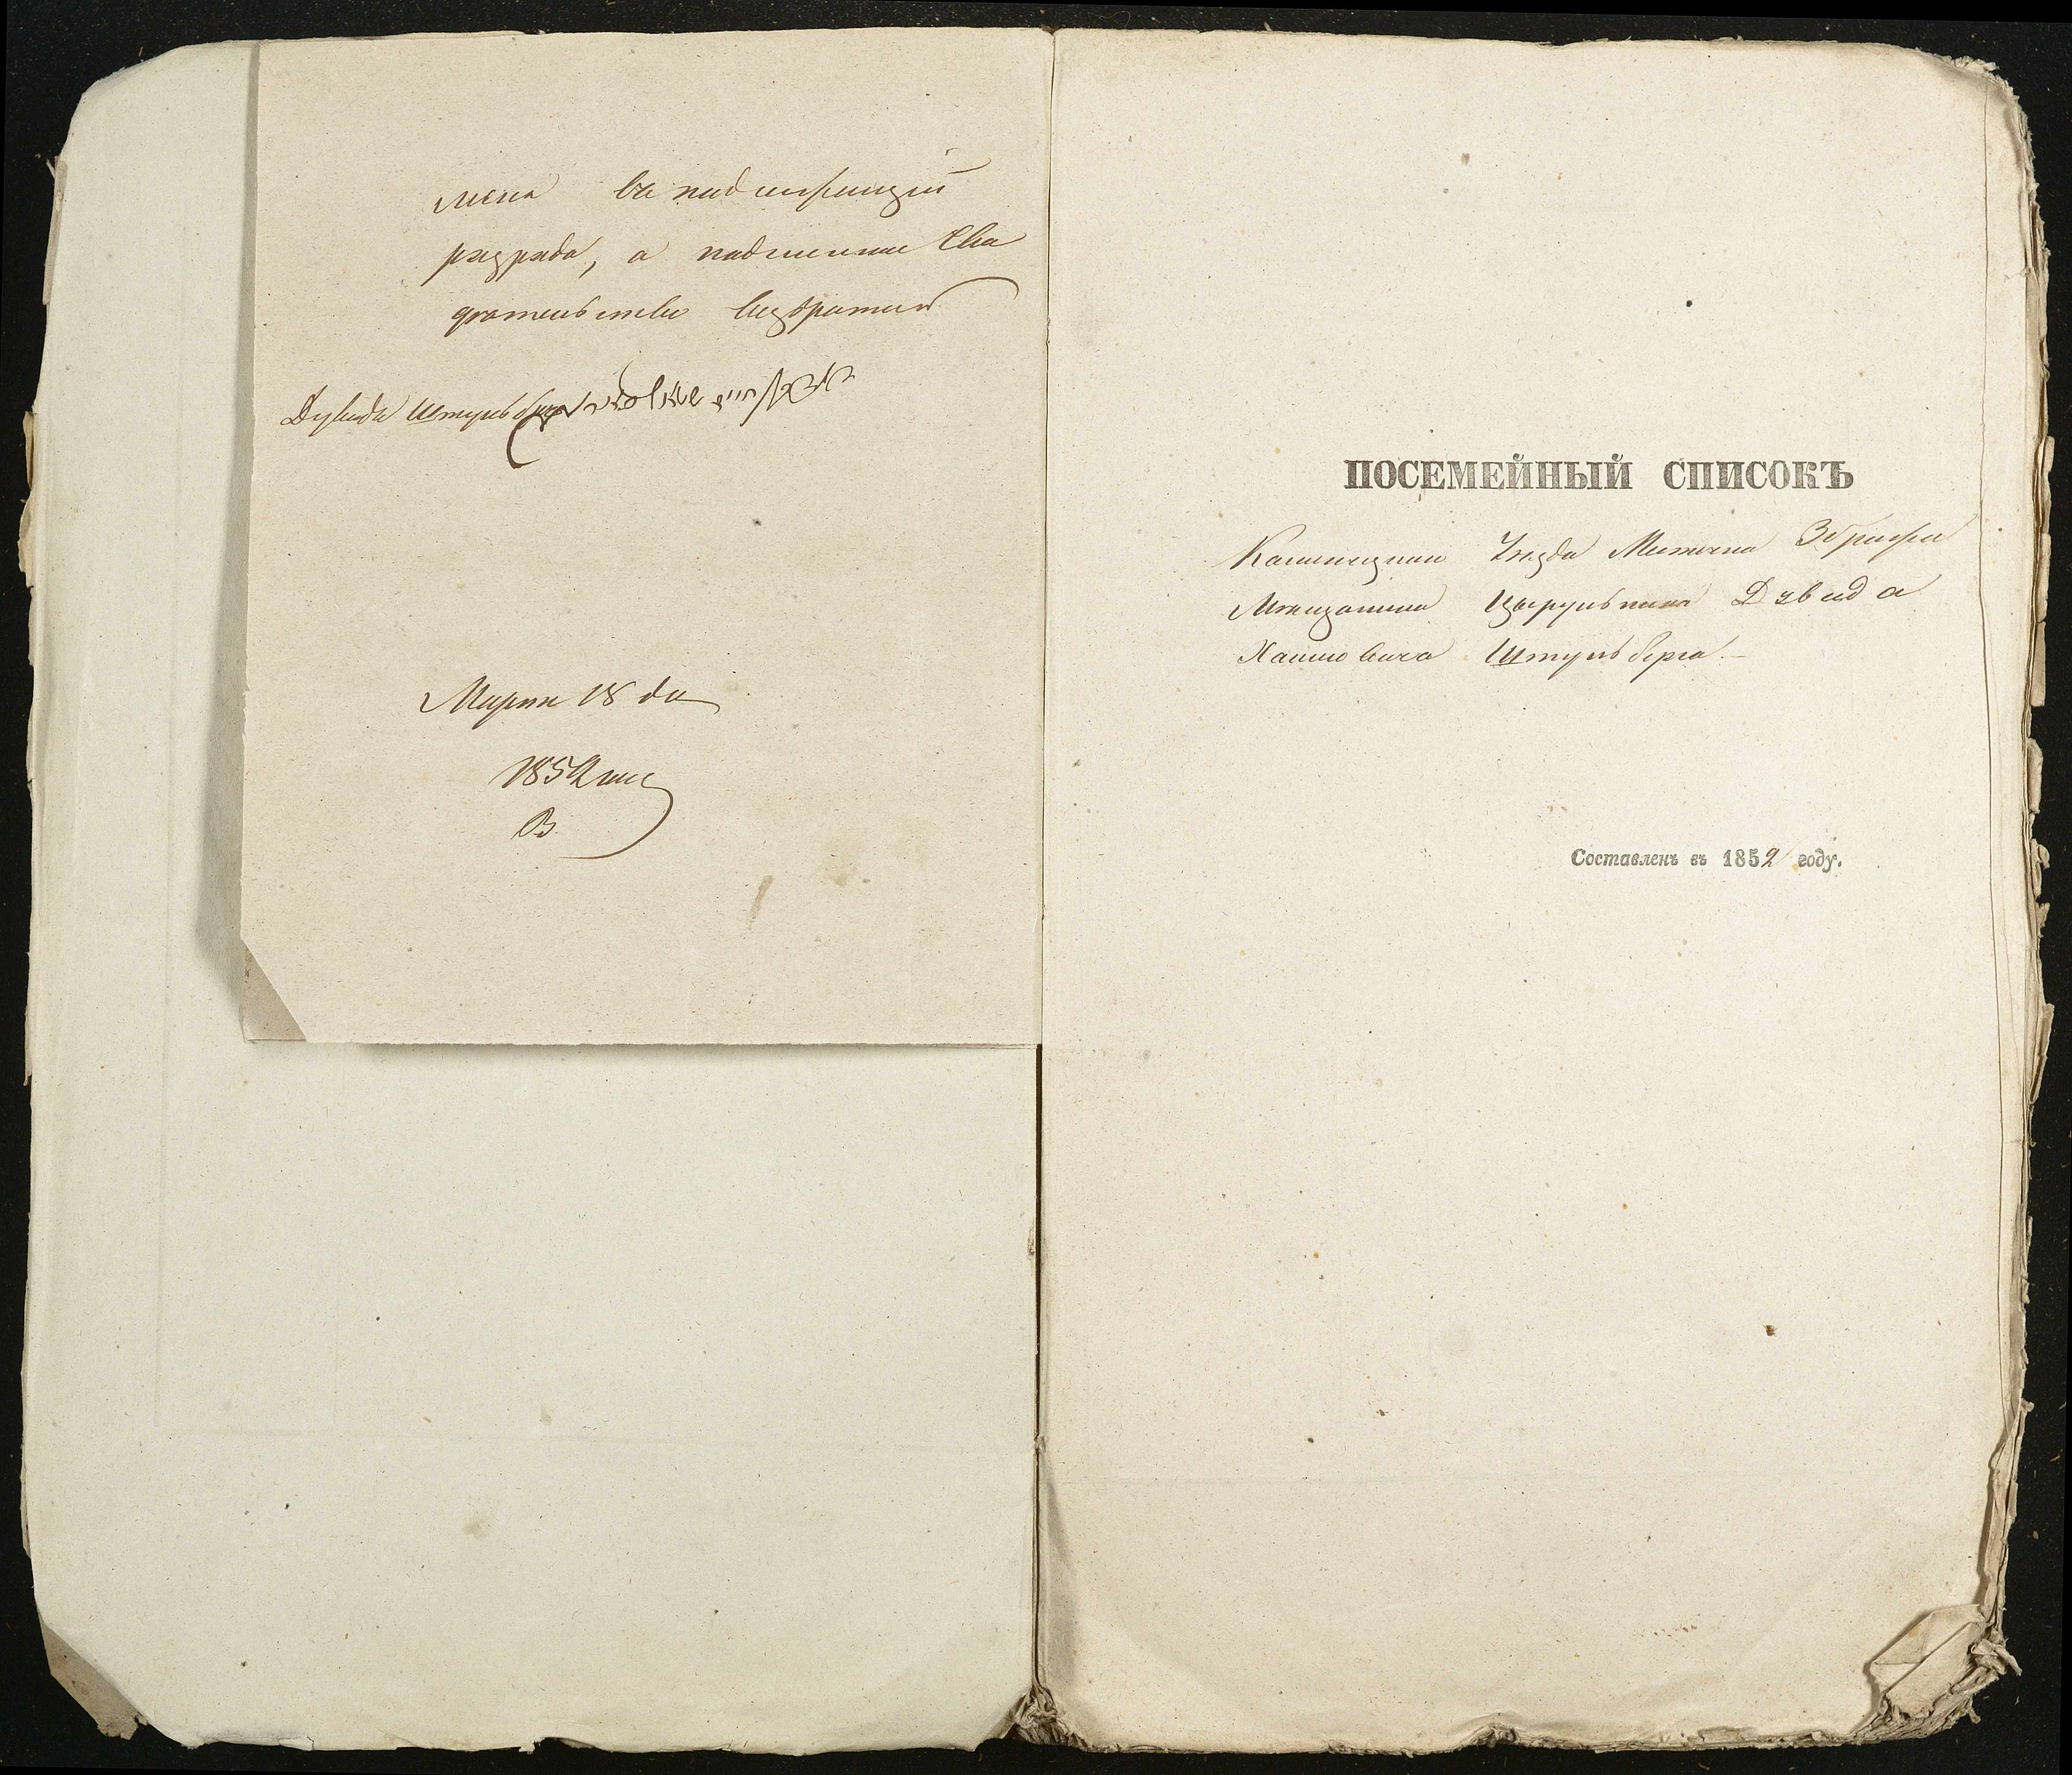 меня въ надлежащій
разрядъ, а подлинные Сви
дѣтельство возвратить
Дувидъ Штульберг
Марта 18 дн
1852 года
В
ПОСЕМЕЙНЫЙ СПИСОКЪ
Каменецкаго Уѣзда Мѣстечка Збрижа
Мѣщанина Цырульника Дувида
Хаимовича Штульберга
Составленъ въ 1852 году.